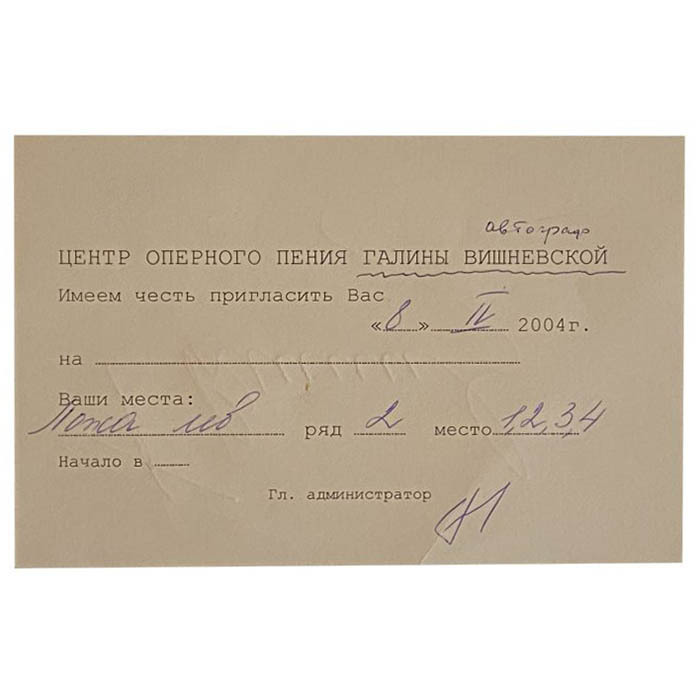 автограф
ЦЕНТР ОПЕРНОГО ПЕНИЯ ГАЛИНЫ ВИШНЕВСКОЙ
Имеем честь пригласить Вас
«8» IV 2004г.
на
Ваши места:
Ложа лев ряд 2 место 1,2,3,4
Начало в
Гл. администратор